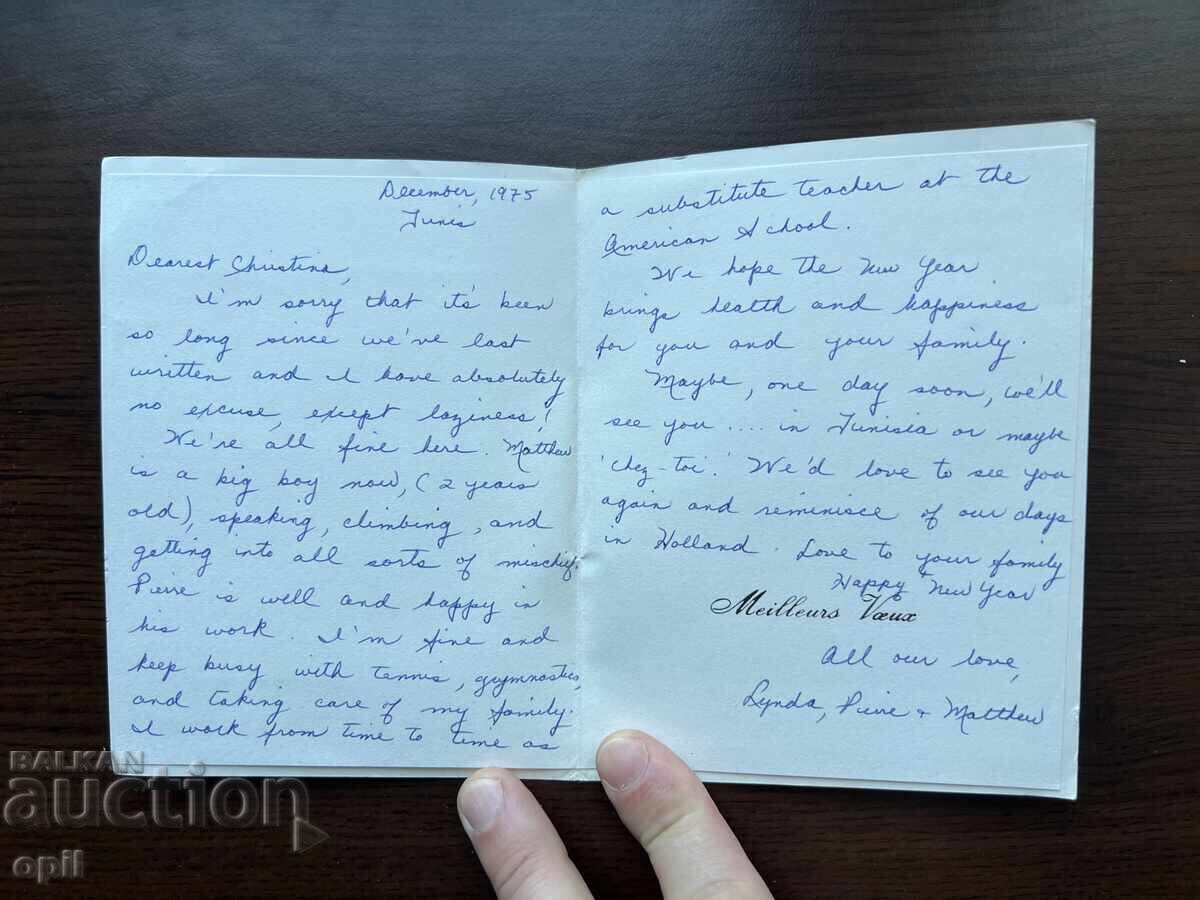 December, 1975
Tunis
Dearest Christina,
I'm sorry that it's been
so long since we've last
written and I have absolutely
no excuse, except laziness!
We're all fine here. Matthew
is a big boy now, (2 years
old), speaking, climbing, and
getting into all sorts of mischief.
Pierre is well and happy in
his work. I'm fine and
keep busy with tennis, gymnastics,
and taking care of my family.
I work from time to time as
a substitute teacher at the
American School.
We hope the New Year
brings health and happiness
for you and your family.
Maybe, one day soon, we'll
see you .... in Tunisia or maybe
'chez-toi.' We'd love to see you
again and reminisce of our days
in Holland. Love to your family
+
Happy New Year
Meilleurs Vœux
All our love,
Lynda, Pierre + Matthew
BALKAN
auction
opil